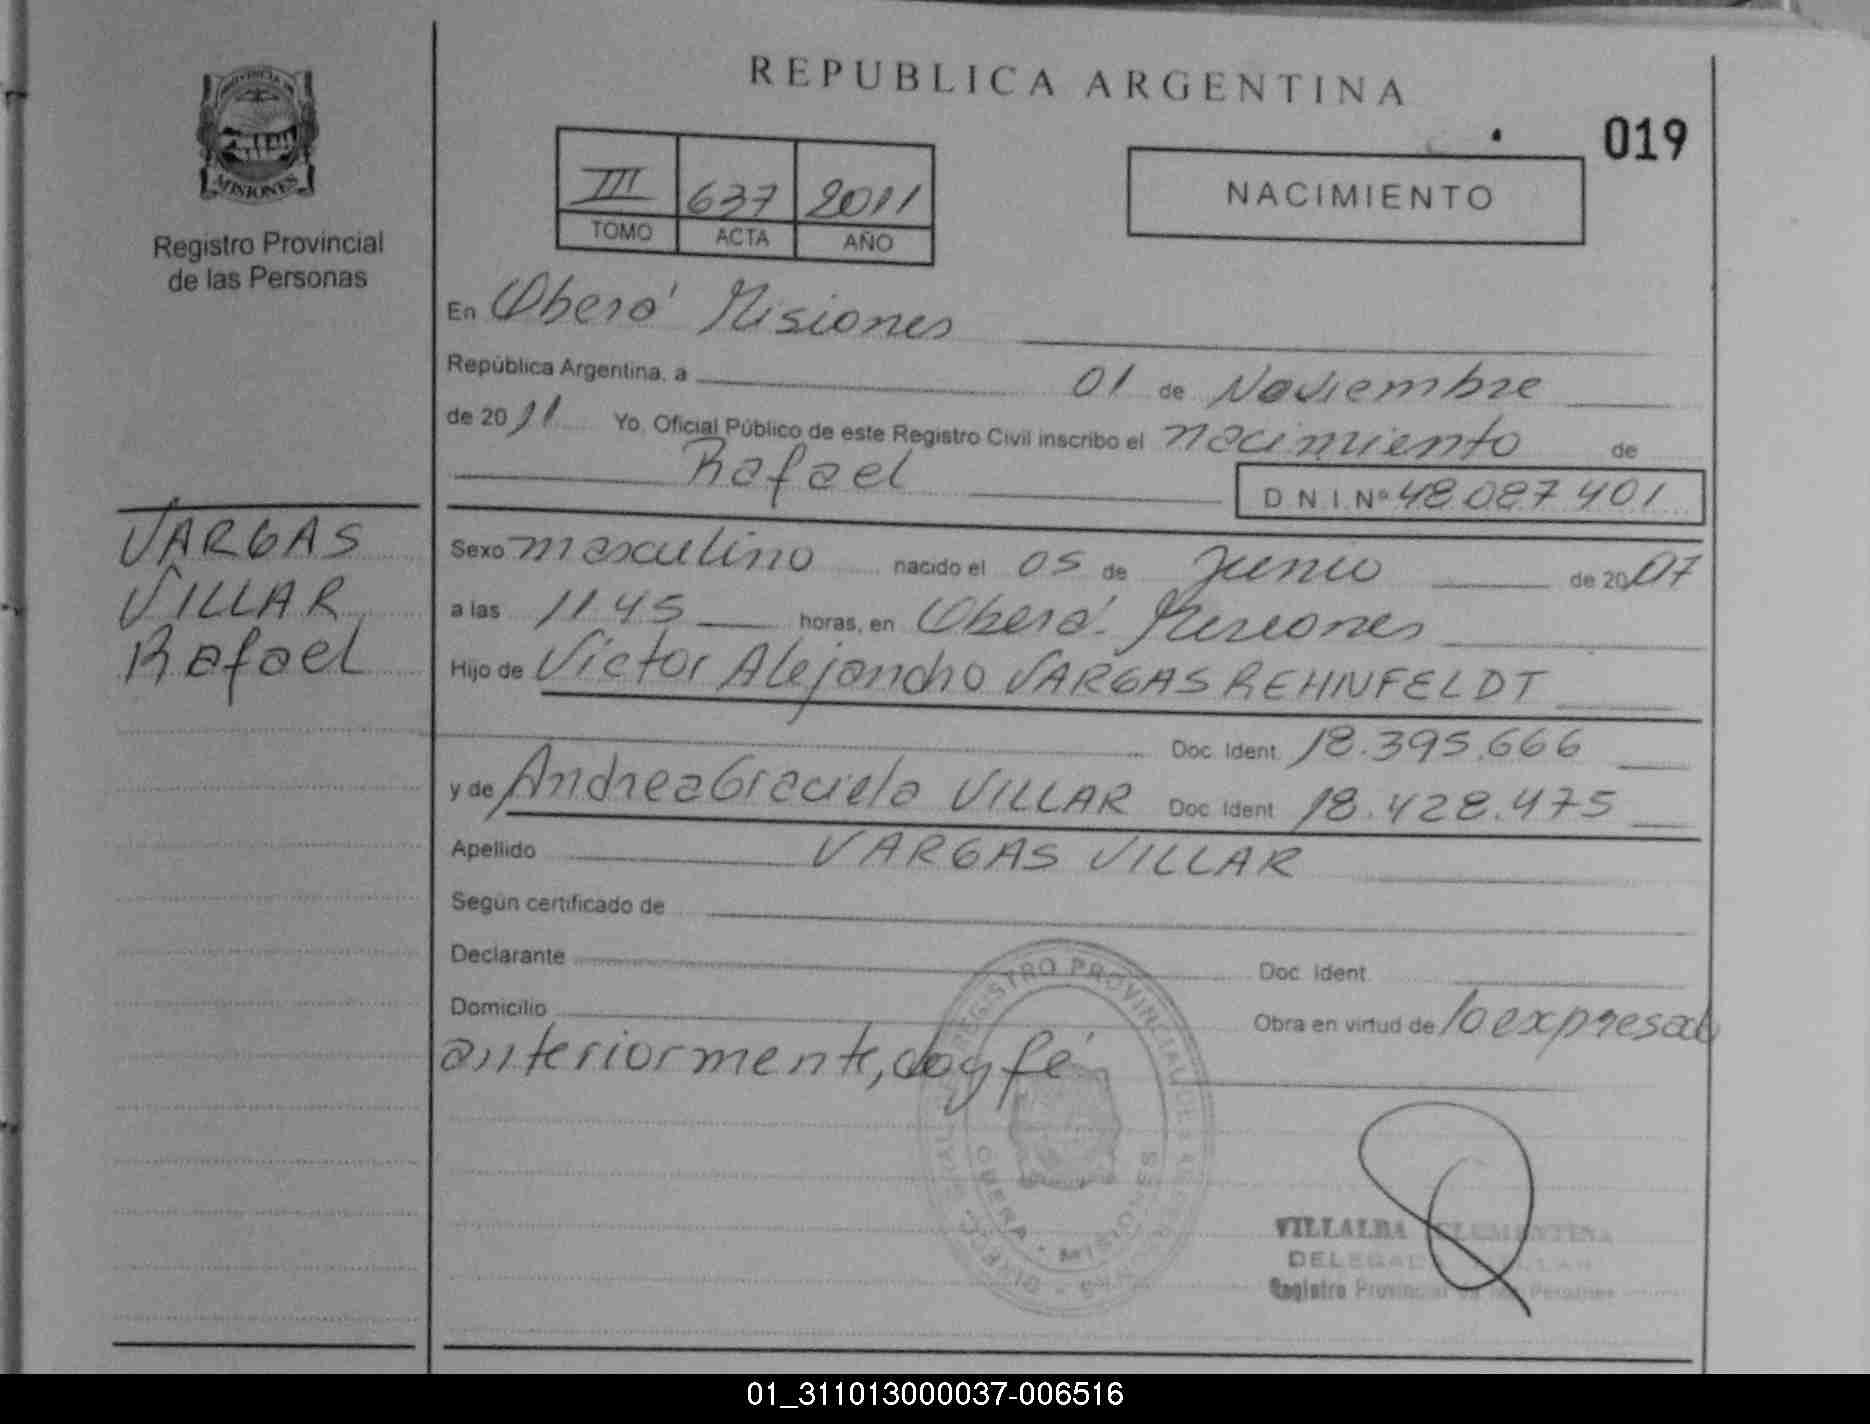 REPUBLICA ARGENTINA
019
PROVINCIA DE
MISIONES
Registro Provincial
de las Personas
III 637 2011
TOMO ACTA AÑO
NACIMIENTO
En Oberá Misiones
República Argentina, a 01 de Noviembre
de 2011 Yo, Oficial Público de este Registro Civil inscribo el nacimiento de
Rafael D N I Nº 48.087.401
VARGAS
VILLAR
Rafael
Sexo masculino nacido el 05 de Junio de 2007
a las 11 45 horas, en Oberá. Misiones
Hijo de Víctor Alejandro VARGAS REHNFELDT
Doc. Ident. 18.395.666
y de Andrea Graciela VILLAR Doc. Ident. 18.428.475
Apellido VARGAS VILLAR
Según certificado de
Declarante Doc. Ident.
Domicilio Obra en virtud de lo expresado
anteriormente, doy fé
REGISTRO PROVINCIAL DE LAS PERSONAS
OBERA - MISIONES
VILLALBA CLEMENTINA
Registro Provincial de las Personas
01_311013000037-006516